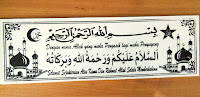 بسم الله الرحمن الرحيم
Dengan nama Allah yang maha Pengasih lagi maha Penyayang
السلام عليكم ورحمة الله وبركاته
Selamat Sejahtera Atas Kamu Dan Rahmat Allah Serta Keberkatannya